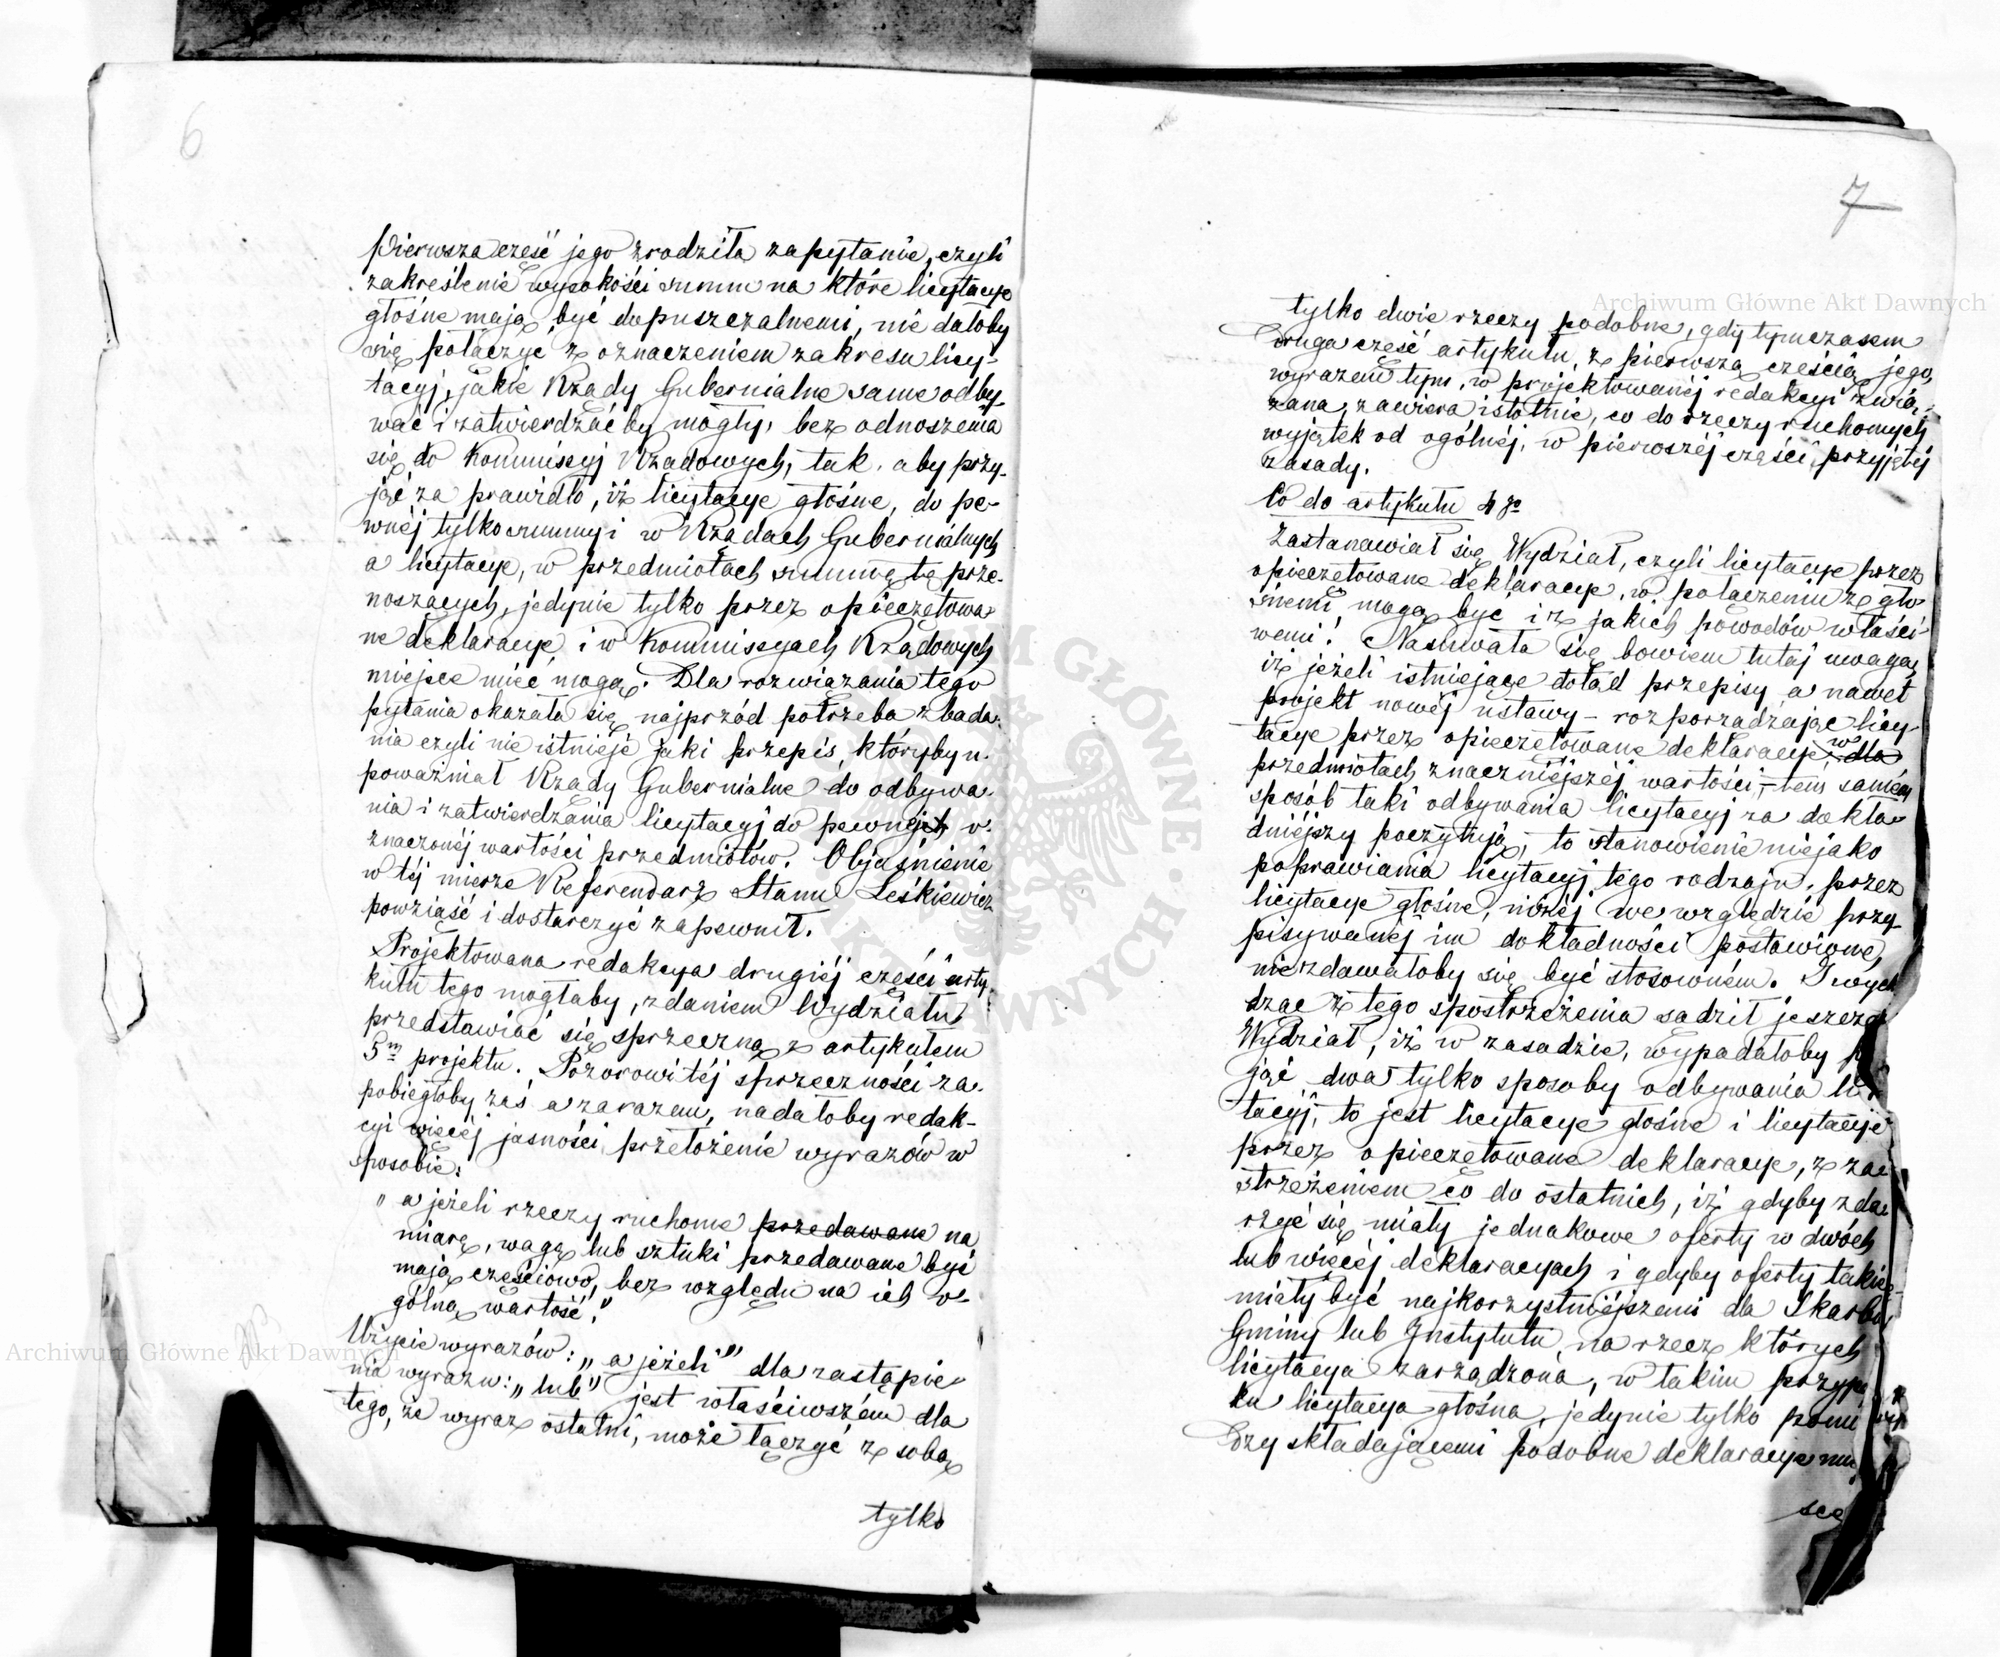 6
Pierwsza cześć jego zrodziła zapytanie, czyli
zakreślenie wysokości summ na które licytacye
głośne mają być dopuszczalnemi, nie dałoby
się połączyć z oznaczeniem zakresu licy-
tacyj, jakie Rządy Gubernialne same odby-
wać i zatwierdzać by mogły, bez odnoszenia
się do Kommissyj Rządowych, tak, aby przy-
jąć za prawidło, iż licytacye głośne, do pe-
wnéj tylko summy i w Rządach Gubernialnych
a licytacye, w przedmiotach summę tę prze-
noszących, jedynie tylko przez opieczętowa-
ne deklaracye i w Kommissyach Rządowych
miejsce mieć mogą. Dla rozwiązania tego
pytania okazała się najprzód potrzeba zbada-
nia czyli nie istnieje jaki przepis, któryby u-
poważniał Rządy Gubernialne do odbywa-
nia i zatwierdzania licytacyj do pewnéj o-
znaczonéj wartości przedmiotów. Objaśnienie
w téj mierze Referendarz Stanu Leśkiewicz
powziąść i dostarczyć zapewnił.
Projektowana redakcya drugiéj części arty-
kułu tego mogłaby, zdaniem Wydziału
przedstawiać się sprzeczną z artykułem
5m projektu. Pozorowi téj sprzeczności za-
pobiegłoby zaś a zarazem, nadałoby redak-
cyi więcéj jasności przełożenie wyrazów w
sposobie:
„a jeżeli rzeczy ruchome przedawane na
miarę, wagę lub sztuki przedawane być
mają częściowo, bez względu na ich o-
gólną wartość."
Użycie wyrazów: „a jeżeli" dla zastąpie-
nia wyrazu: „lub" jest właściwszém dla
tego, że wyraz ostatni, może łączyć z sobą
tylko
7
tylko dwie rzeczy podobne, gdy tymczasem
druga cześć artykułu, z pierwszą cześcią jego,
wyrazem tym, w projektowanéj redakcyi zwią-
zana, zawiera istotnie, co do rzeczy ruchomych
wyjątek od ogólnéj, w pierwszéj części przyjętéj
zasady.
Co do artykułu 4go
Zastanawiał się Wydział, czyli licytacye przez
opieczętowane deklaracye, w połączeniu z gło-
śnemi mogą być i z jakich powodów właści-
wemi? Nasuwała się bowiem tutaj uwaga,
iż jeżeli istniejące dotąd przepisy a nawet
projekt nowéj ustawy – rozporządzając licy-
tacye przez opieczętowane deklaracye, w dla
przedmiotach znaczniejszéj wartości, – tém samém
sposób taki odbywania licytacyj za dokła-
dniejszy poczytują, to stanowienie niejako
poprawiania licytacyj tego rodzaju, przez
licytacye głośne, niżéj we względzie przy-
pisywanéj im dokładności postawione,
nie zdawałoby się być stosowném. Wych
dząc z tego spostrzeżenia sądził jeszcze
Wydział, iż w zasadzie, wypadałoby
jąć dwa tylko sposoby odbywania li
tacyj, to jest licytacye głośne i licytacye
przez opieczętowane deklaracye, z za-
strzeżeniem co do ostatnich, iż gdyby zda-
rzyć się miały jednakowe oferty w dwóch
lub więcéj deklaracyach i gdyby oferty takie
miały być najkorzystniejszemi dla Skarbu
Gminy lub Instytutu, na rzecz których
licytacya zarządzona, w takim przypa
ku licytacya głośna, jedynie tylko pomię
dzy składającemi podobne deklaracye
sce
Archiwum Główne Akt Dawnych
Archiwum Główne Akt Dawnych
ARCHIWUM GŁÓWNE AKT DAWNYCH